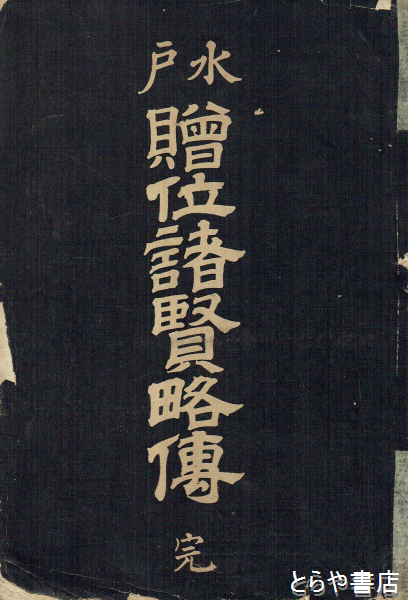 水戸
贈位諸賢略傳
完
とらや書店